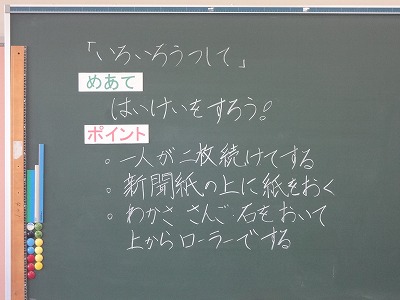 「いろいろうつして」
めあて
はいけいをすろう!
ポイント
。一人が二枚続けてする
。新聞紙の上に紙をおく
。わかささんご・石をおいて
上からローラーでする